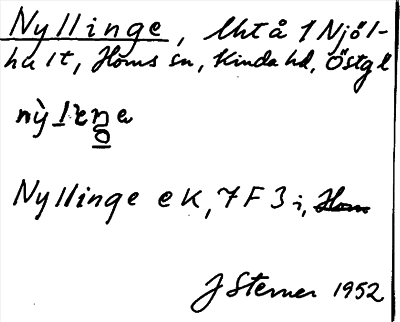 Nyllinge, Uht å 1 Njöl-
hult, Horns sn, Kinda hd, Östgl
Nyllinge ek, 7F3i, Horn
J Sterner 1952